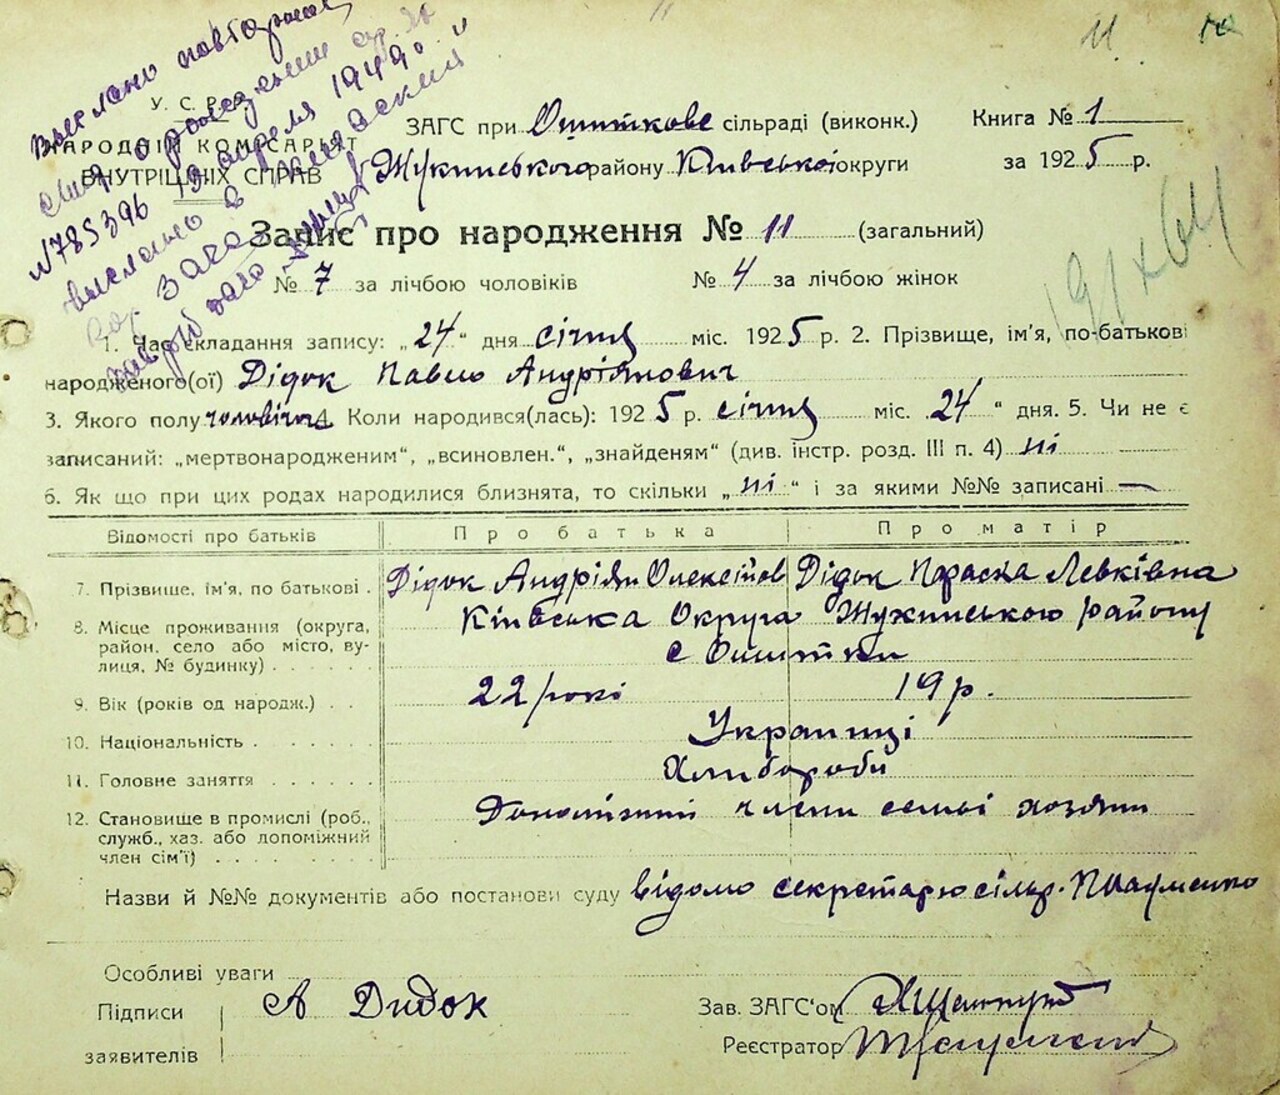 11
Выслано повторное
свид. о рождении
№785396 19 апреля 1949 г.
выслано в
ЗАГС
У. С. Р. Р.
НАРОДНІЙ КОМІСАРІЯТ
ВНУТРІШНІХ СПРАВ
ЗАГС при Ошиткове сільраді (виконк.)
Жукинського району Київської округи
Книга № 1
за 1925 р.
Запис про народження № 11 (загальний)
№ 7 за лічбою чоловіків № 4 за лічбою жінок
1. Час складання запису: „24“ дня січня міс. 1925 р. 2. Прізвище, ім'я, по-батькові
народженого(ої) Дідок Павло Андріянович
3. Якого полу чоловіча 4. Коли народився(лась): 1925 р. січня міс. 24 “ дня. 5. Чи не є
записаний: „мертвонародженим“, „всиновлен.“, „знайденям“ (див. інстр. розд. III п. 4) ні
6. Як що при цих родах народилися близнята, то скільки „ні“ і за якими №№ записані —
Відомості про батьків Про батька Про матір
7. Прізвище, ім'я, по батькові . Дідок Андріян Олексійов Дідок Параска Левківна
8. Місце проживання (округа, Київська Округа Жукинського району
район, село або місто, ву- с Ошитки
лиця, № будинку) . . . . . .
9. Вік (років од народж.) . . 22 рокі 19 р.
10. Національність . . . . . . Украінці
11. Головне заняття . . . . . Хлибороби
12. Становище в промислі (роб., члени семьі хозяїн
служб., хаз. або допоміжний
член сім'ї) . . . . . . . .
Назви й №№ документів або постанови суду відомо секретарю сільр.
Особливі уваги
Підписи А Дидок Зав. ЗАГС'ом
заявителів Реєстратор